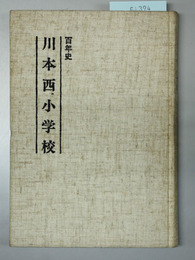 百年史
川本西小学校